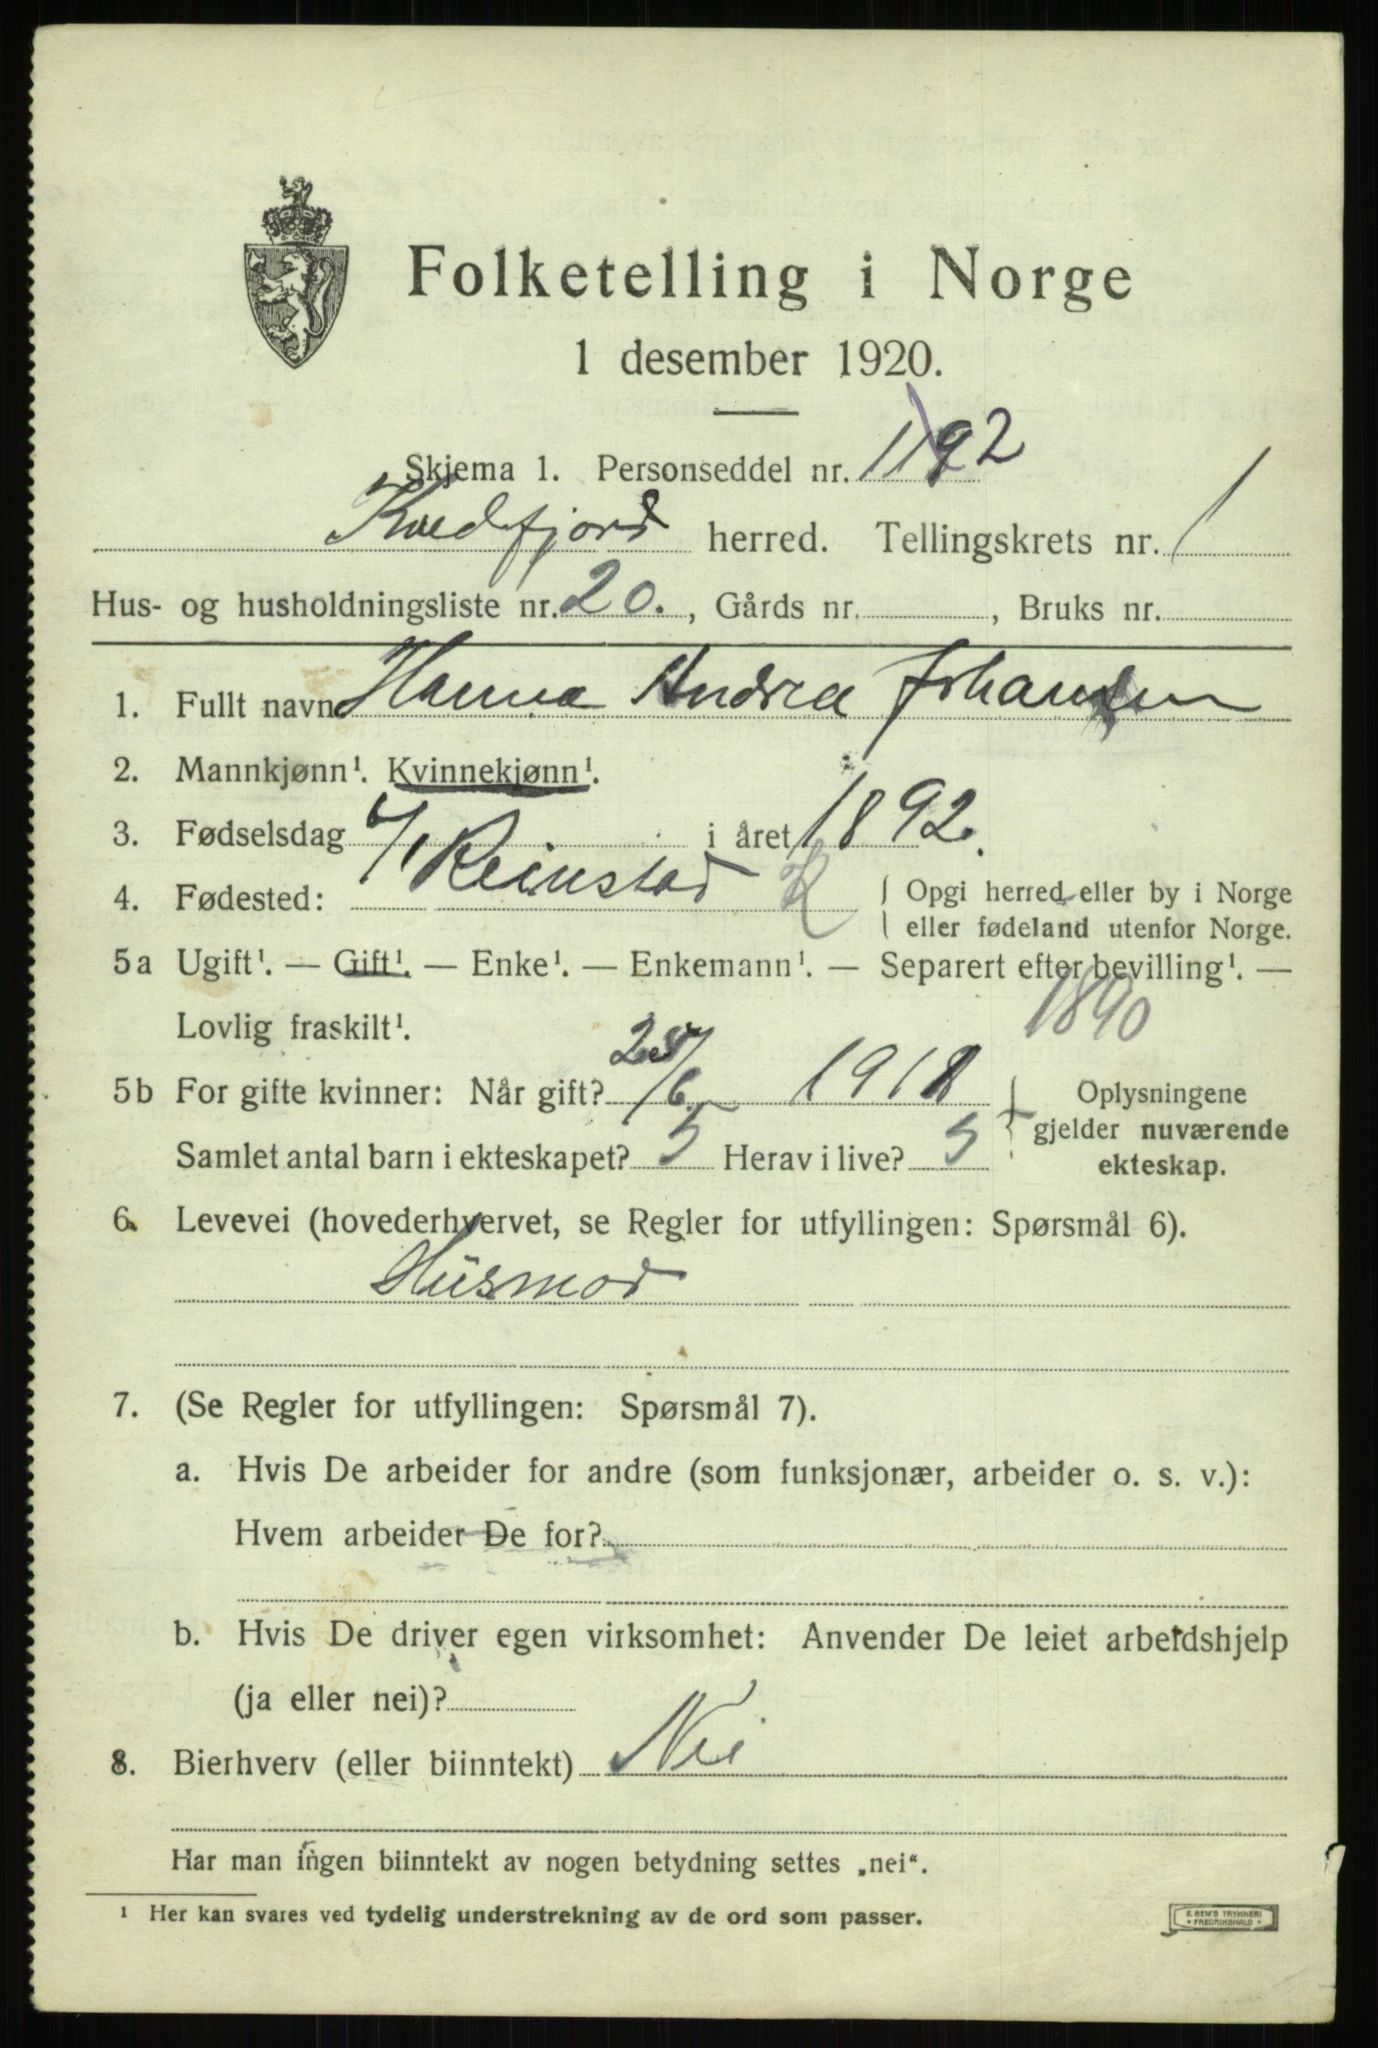 Folketelling i Norge
1 desember 1920.
Skjema 1. Personseddel nr. 192
Kvedfjord herred. Tellingskrets nr. 1
Hus- og husholdningsliste nr. 20. , Gårds nr. , Bruks nr.
1. Fullt navn Hanna Andrea Johansen
2. Mannkjønn¹. Kvinnekjønn¹.
3. Fødselsdag 4/1 i året 1892.
4. Fødested: Reinstad K { Opgi herred eller by i Norge
eller fødeland utenfor Norge.
5a Ugift¹. — Gift¹. — Enke¹. — Enkemann¹. — Separert efter bevilling¹. —
Lovlig fraskilt¹. 1890
5b For gifte kvinner: Når gift? 25/6 1911 } Oplysningene
gjelder nuværende
Samlet antal barn i ekteskapet? 5 Herav i live? 5 ekteskap.
6. Levevei (hovederhvervet, se Regler for utfyllingen: Spørsmål 6).
Husmor
7. (Se Regler for utfyllingen: Spørsmål 7).
a. Hvis De arbeider for andre (som funksjonær, arbeider o. s. v.):
Hvem arbeider De for?
b. Hvis De driver egen virksomhet: Anvender De leiet arbeidshjelp
(ja eller nei)?
8. Bierhverv (eller biinntekt) Nei
Har man ingen biinntekt av nogen betydning settes „nei“.
¹ Her kan svares ved tydelig understrekning av de ord som passer.
E. SEM'S TRYKKERI
* FREDRIKSHALD *